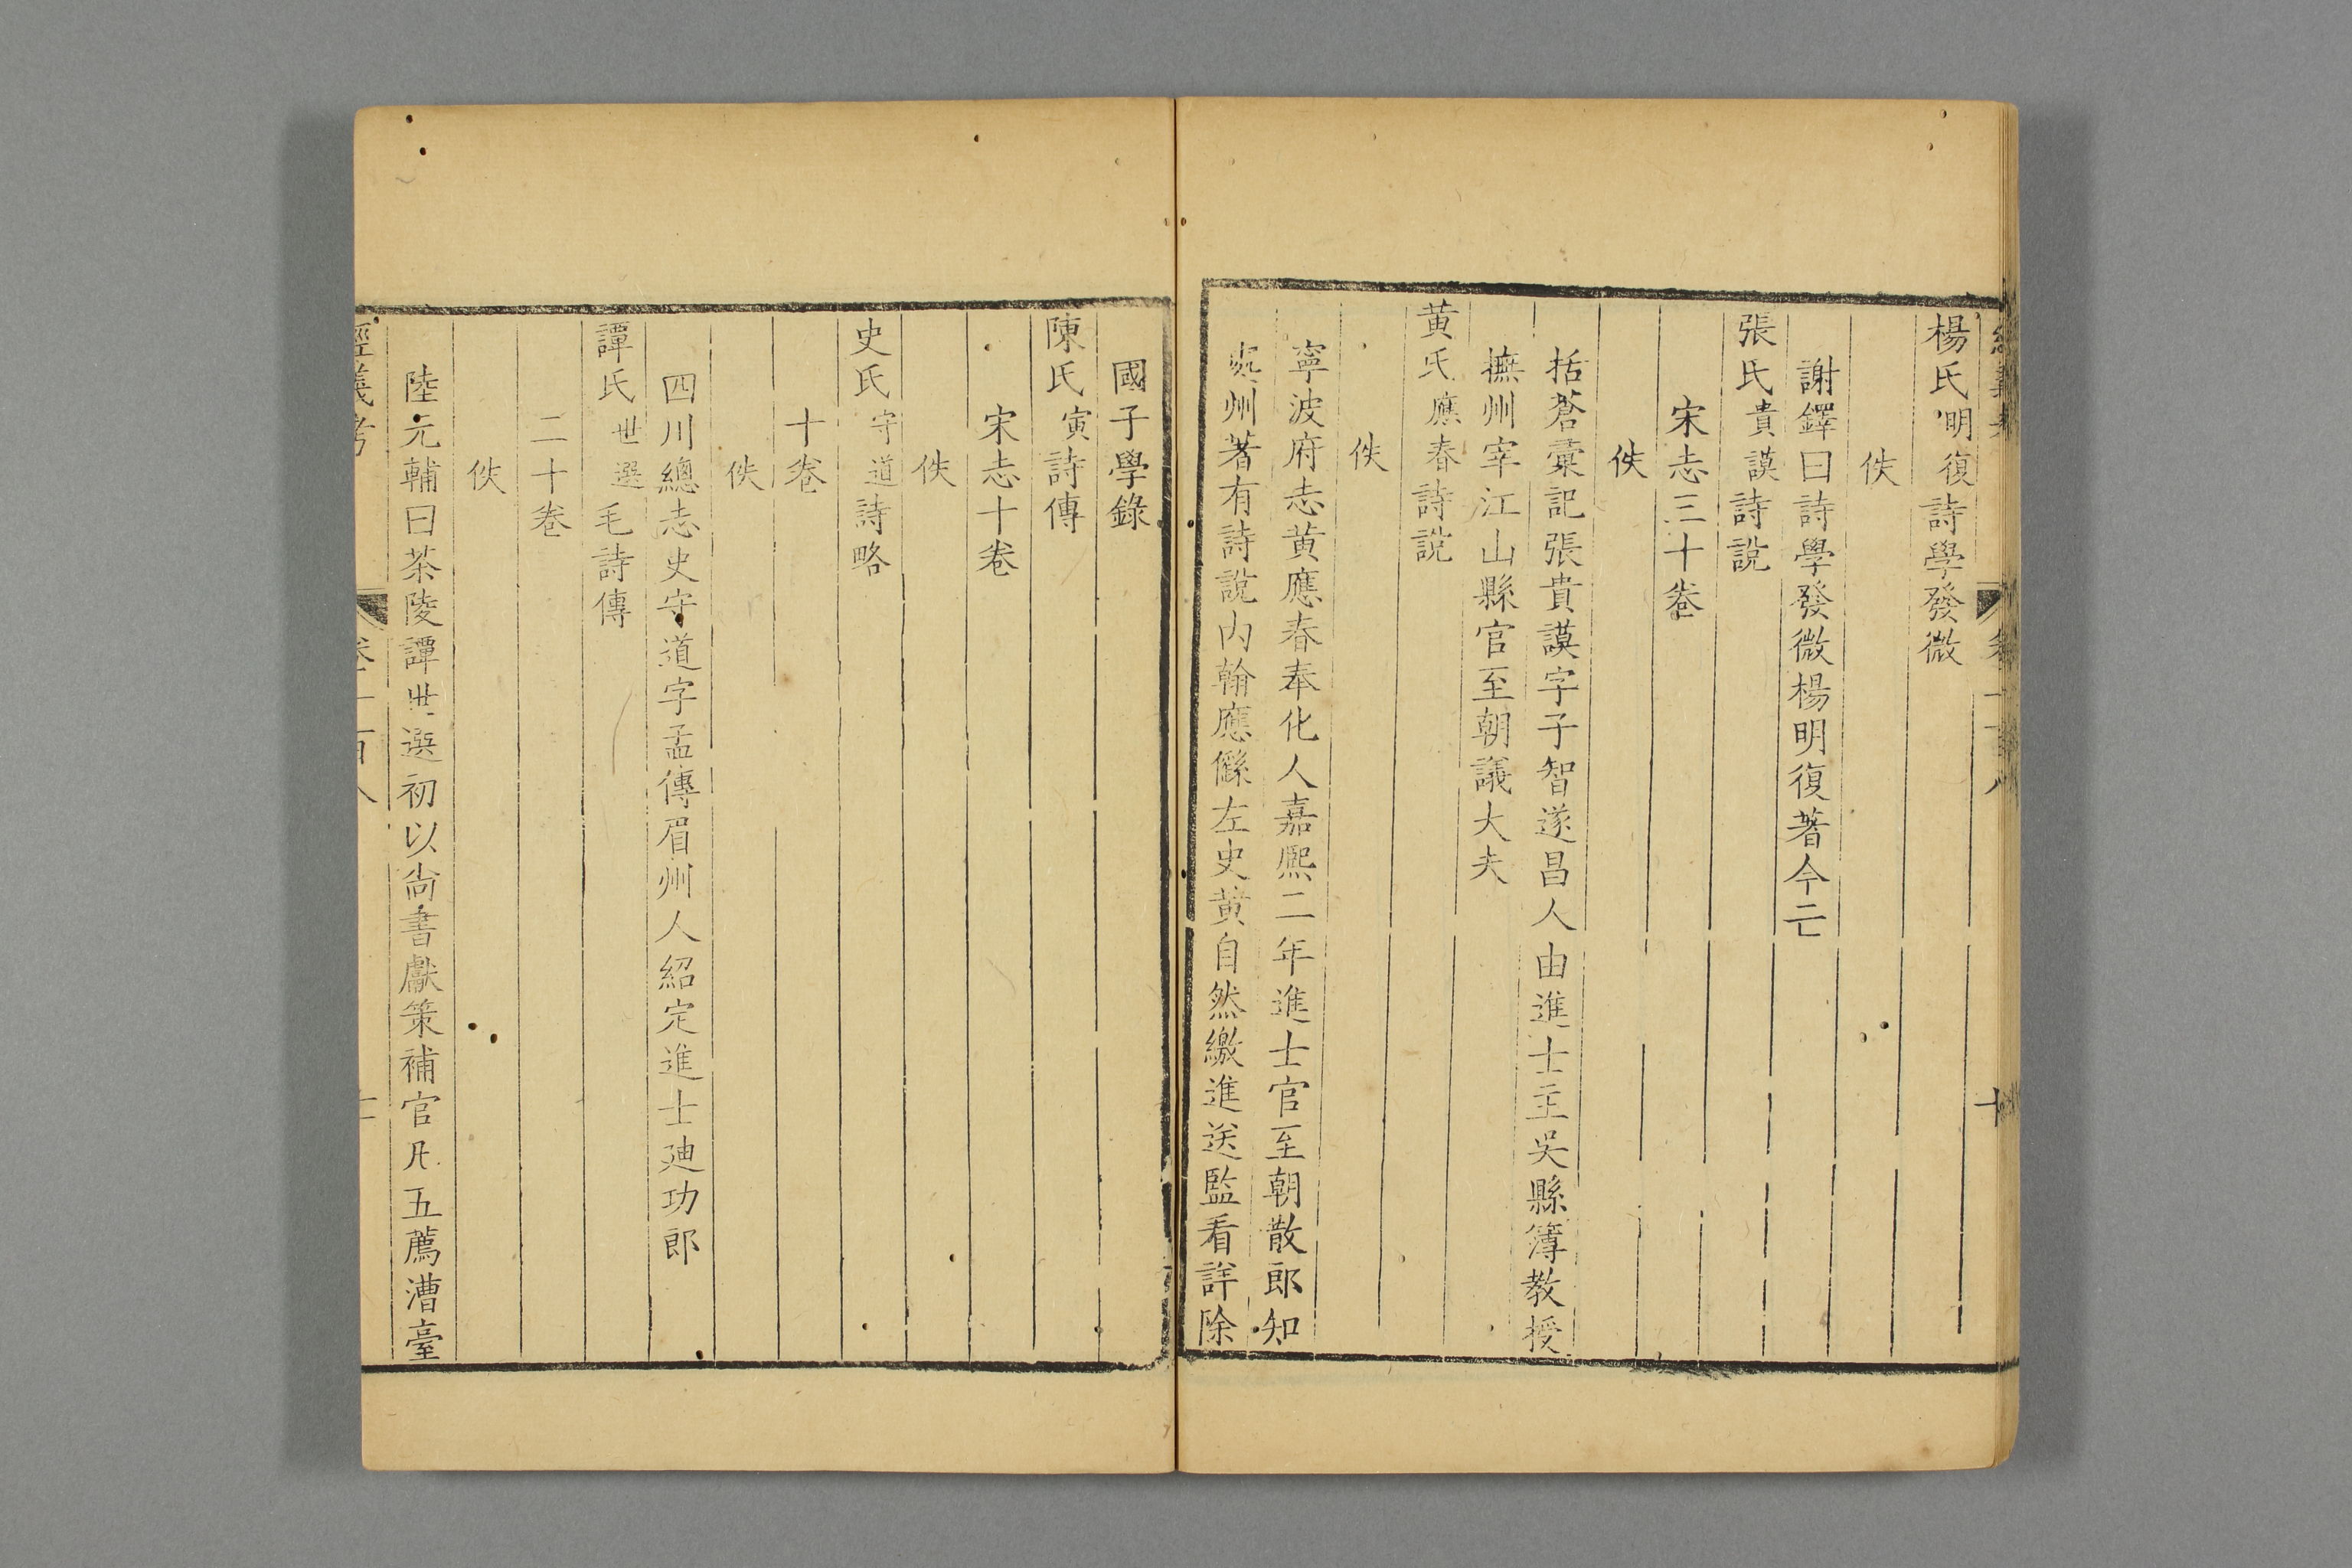 楊氏明復詩學發微
佚
謝鐸曰詩學發微楊明復著今亡
張氏貴謨詩說
宋志三十卷
佚
括蒼彙記張貴謨字子智遂昌人由進士主吳縣簿教授
撫州宰江山縣官至朝議大夫
黃氏應春詩說
佚
寧波府志黃應春奉化人嘉熙二年進士官至朝散郎知
處州著有詩說內翰應㒡左史黃自然繳進送監看詳除
國子學錄
陳氏寅詩傳
宋志十卷
佚
史氏守道詩略
十卷
佚
四川總志史守道字孟傳眉州人紹定進士廸功郎
譚氏世選毛詩傳
二十卷
佚
陸元輔曰茶陵譚世選初以尚書獻策補官凡五薦漕臺
經義考
卷一百八